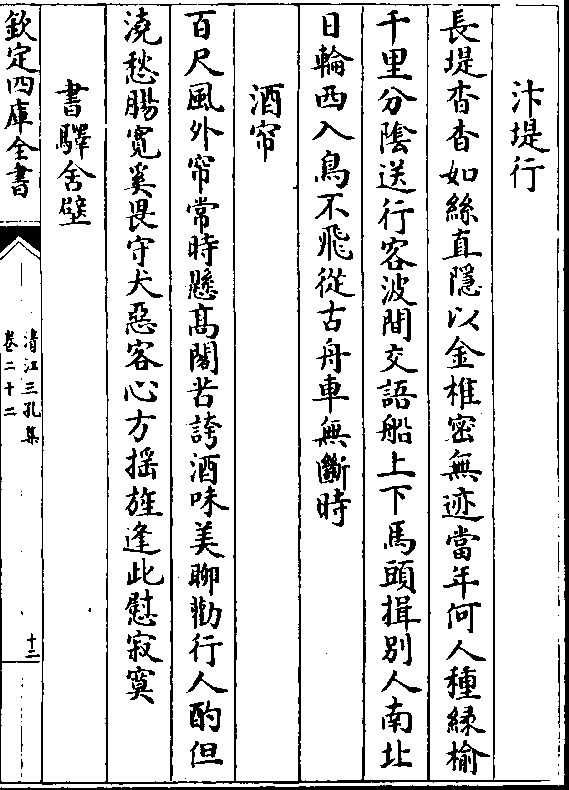 汴堤行
長堤杳杳如絲直隱以金椎密無迹當年何人種緑榆
千里分隂送行客波間交語船上下馬頭揖别人南北
日輪西入鳥不飛從古舟車無斷時
酒帘
百尺風外帘常時懸高閣苦誇酒味美聊勸行人酌但
澆愁腸寛奚畏守犬惡客心方揺旌逢此慰寂寞
書驛舍壁
欽定四庫全書
清江三孔集
卷二十二
十二